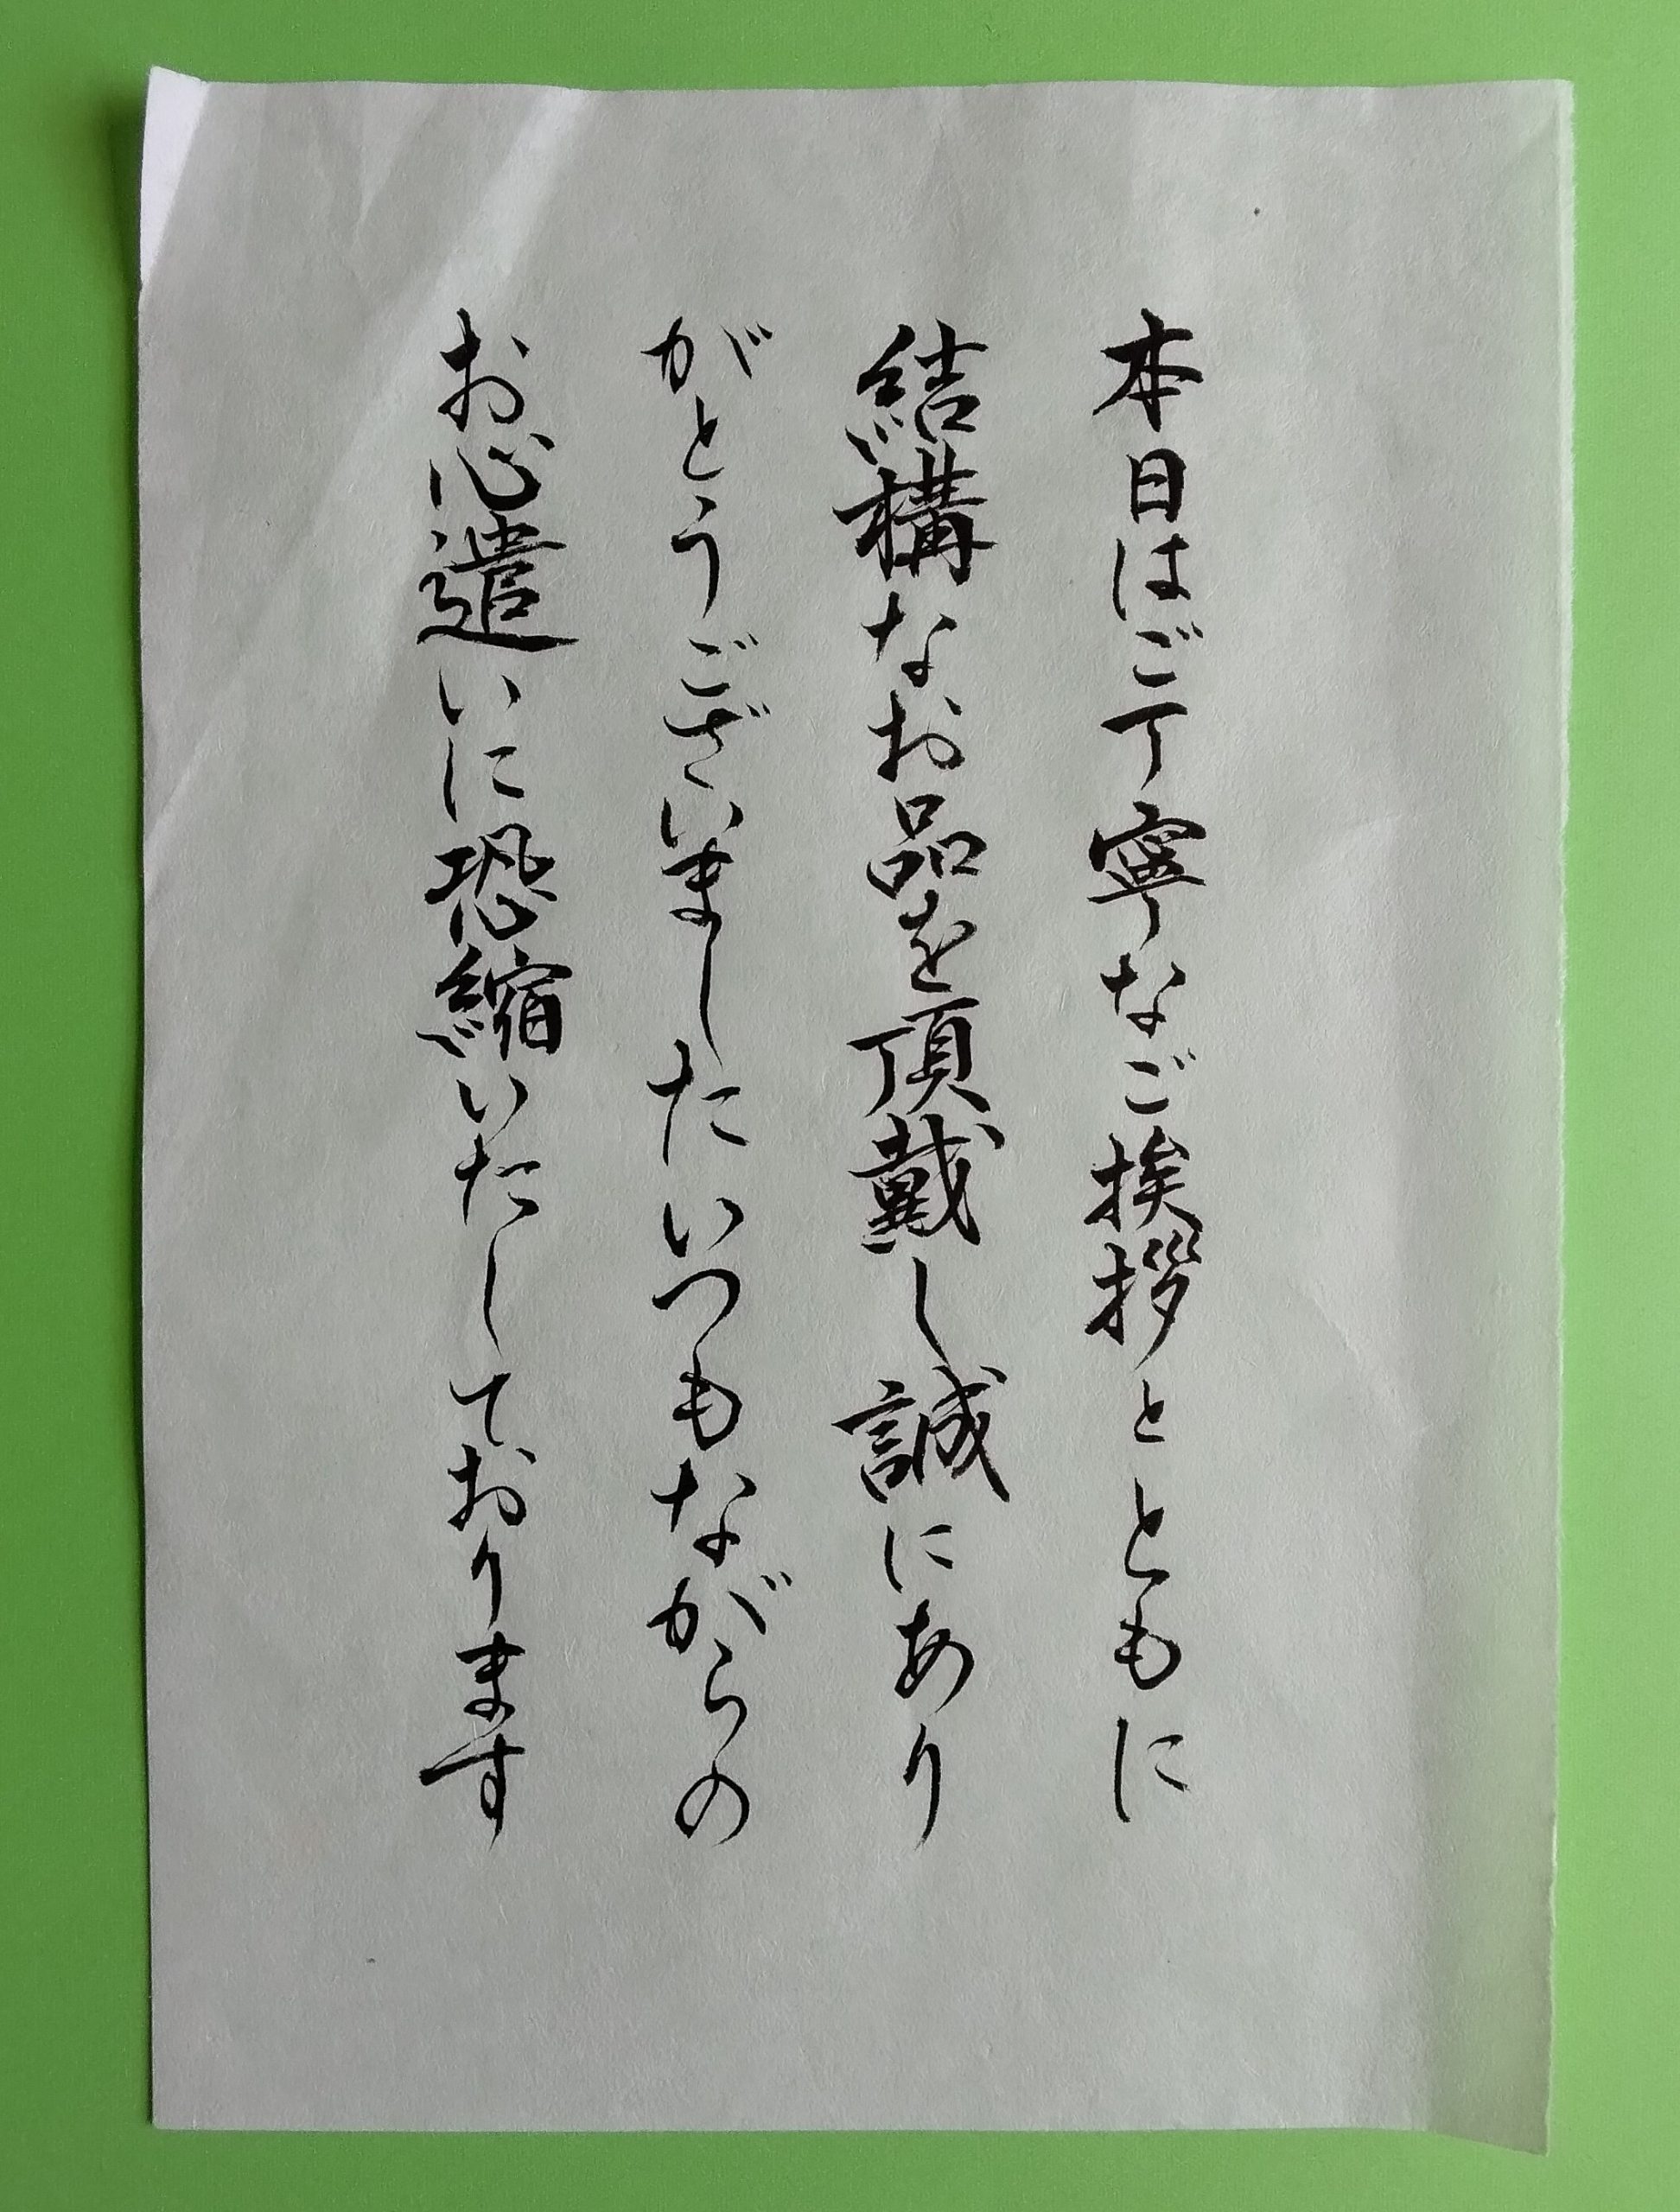 本日はご丁寧なご挨拶とともに
結構なお品を頂戴し誠にあり
がとうございましたいつもながらの
お心遣いに恐縮いたしております